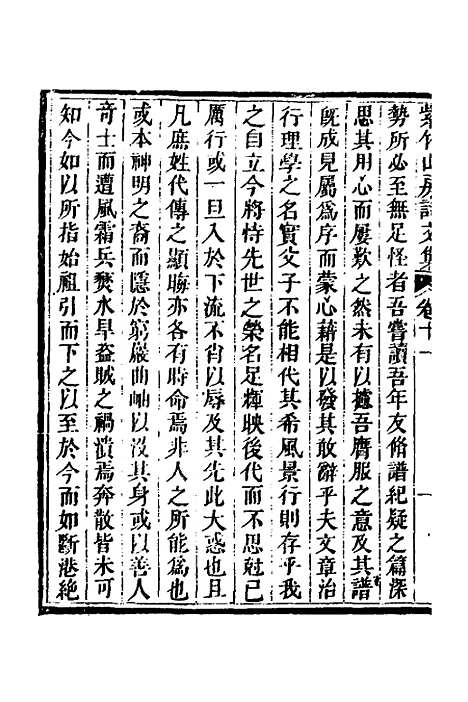 紫竹山房詩文集 卷十一 一
勢所必至無足怪者吾嘗讀吾年友脩譜紀疑之篇深
思其用心而屢歎之然未有以攄吾膺服之意及其譜
旣成見屬爲序而蒙心藉是以發其敢辭乎夫文章治
行理學之名實父子不能相代其希風景行則存乎我
之自立今將恃先世之榮名足輝映後代而不思尅己
厲行或一旦入於下流不肖以辱及其先此大惑也且
凡庶姓代傳之顯晦亦各有時命焉非人之所能爲也
或本神明之裔而隱於窮巖曲岫以沒其身或以善人
竒士而遭風霜兵燹水旱盜賊之禍潰焉奔散皆未可
知今如以所指始祖引而下之以至於今而如斷港絶